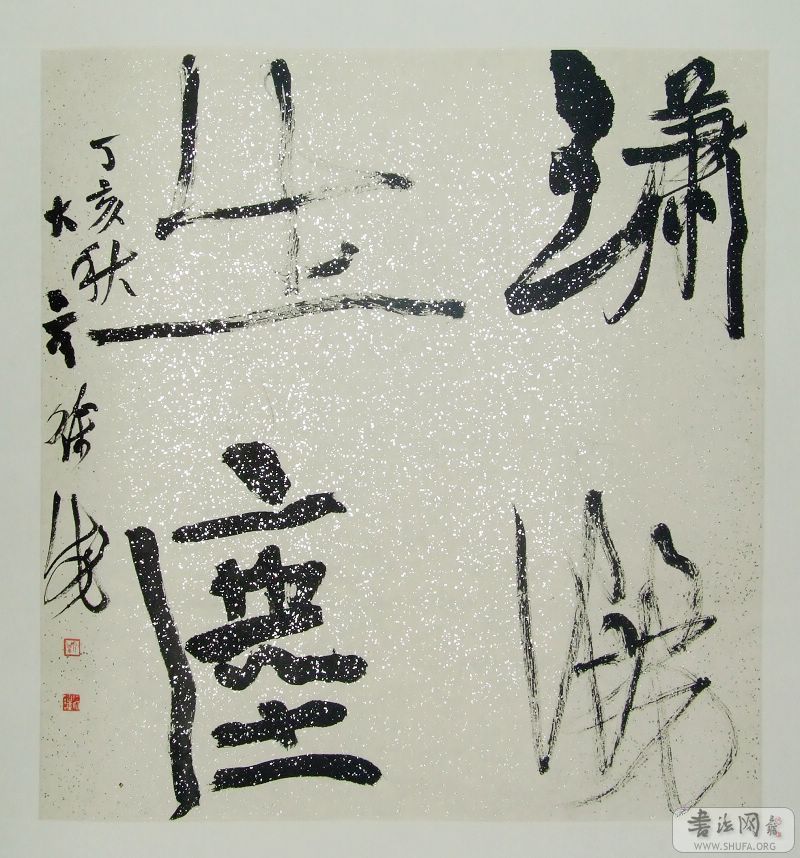 瀟灑
出塵
丁亥秋
大
徐
书法网
WWW.SHUFA.ORG